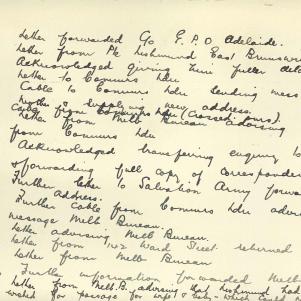 Letter forwarded C/o G.P.O Adelaide.
Letter from Pte Lishmund East Brunswic
Acknowledged giving him fuller det
Letter to Commrs Ldn
Cable to Commrs Ldn sending mess
supplying new address.
Cable from Commrs Ldn (crossed items)
Letter from Melb Bureau advising
from Commrs Ldn
Acknowledged transferring enquiry to
& forwarding full copy of corresponden
Further letter to Salvation Army forwar
address.
Further Cable from Commrs Ldn advis
message Melb Bureau.
Letter advising Melb Bureau.
Letter from 102 Ward Street returned
Letter from Melb Bureau
Further information forwarded Melb
Letter from Melb. B. advising that Lishmund had
for passage for wife & baby which